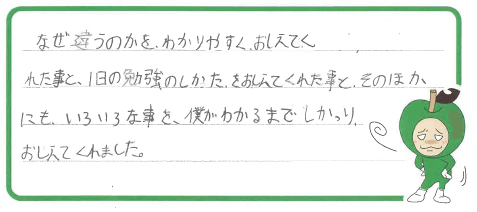 なぜ違うのかを、わかりやすく、おしえてく
れた事と、1日の勉強のしかた、をおしえてくれた事と、そのほか、
にも、いろいろな事を、僕がわかるまでしっかり、
おしえてくれました。